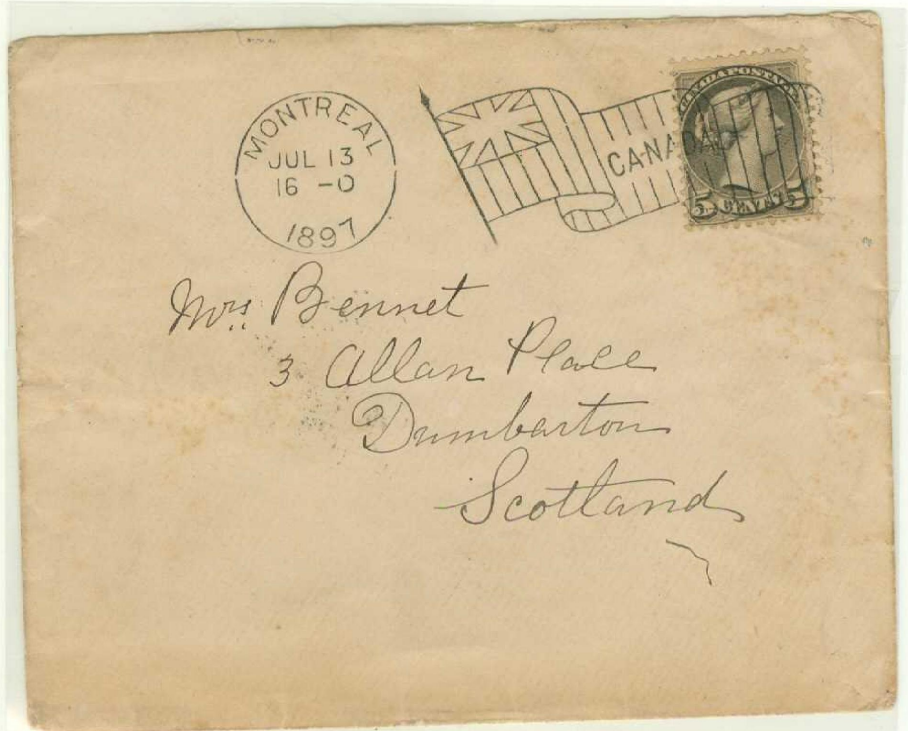 MONTREAL
JUL 13
16 - 0
1897
CANADA
CANADA POSTAGE
5 CENTS 5
Mrs. Bennet
3 Allan Place
Dumbarton
Scotland